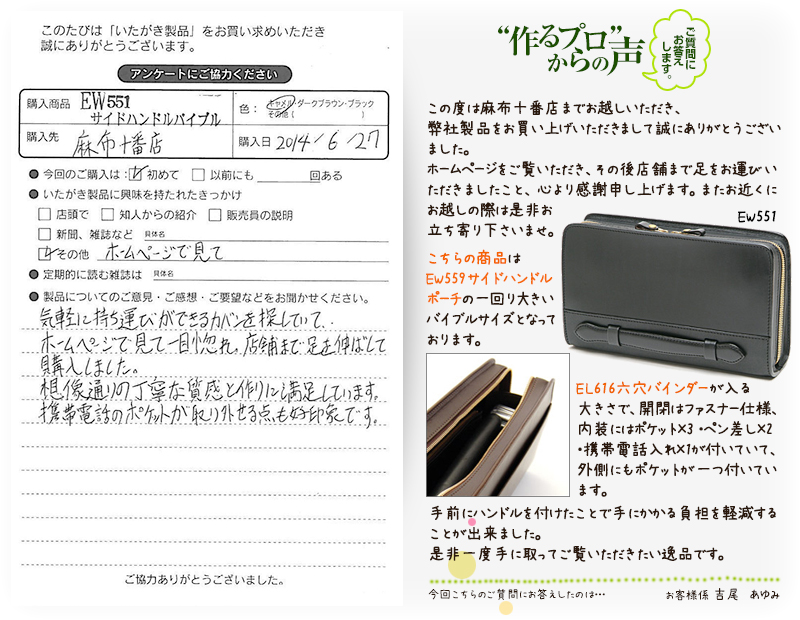 このたびは「いたがき製品」をお買い求めいただき
誠にありがとうございます。
アンケートにご協力ください
購入商品 EW551
サイドハンドルバイブル
色： キャメル・ダークブラウン・ブラック
その他（ ）
購入先 麻布十番店
購入日 2014/6/27
● 今回のご購入は：☑ 初めて □ 以前にも 回ある
● いたがき製品に興味を持たれたきっかけ
□ 店頭で □ 知人からの紹介 □ 販売員の説明
□ 新聞、雑誌など 具体名
☑ その他 ホームページで見て
● 定期的に読む雑誌は 具体名
● 製品についてのご意見・ご感想・ご要望などをお聞かせください。
気軽に持ち運びができるカバンを探していて、
ホームページで見て一目惚れ。店舗まで足を伸ばして
購入しました。
想像通りの丁寧な質感と作りに満足しています。
携帯電話のポケットが取り外せる点も好印象です。
ご協力ありがとうございました。
“作るプロ”
からの声
ご質問に
お答え
します。
この度は麻布十番店までお越しいただき、
弊社製品をお買い上げいただきまして誠にありがとうござい
ました。
ホームページをご覧いただき、その後店舗まで足をお運びい
ただきましたこと、心より感謝申し上げます。またお近くに
お越しの際は是非お
立ち寄り下さいませ。
EW551
こちらの商品は
EW559サイドハンドル
ポーチの一回り大きい
バイブルサイズとなって
おります。
EL616六穴バインダーが入る
大きさで、開閉はファスナー仕様、
内装にはポケット×3・ペン差し×2
・携帯電話入れ×1が付いていて、
外側にもポケットが一つ付いてい
ます。
手前にハンドルを付けたことで手にかかる負担を軽減する
ことが出来ました。
是非一度手に取ってご覧いただきたい逸品です。
今回こちらのご質問にお答えしたのは…
お客様係 吉尾 あゆみ